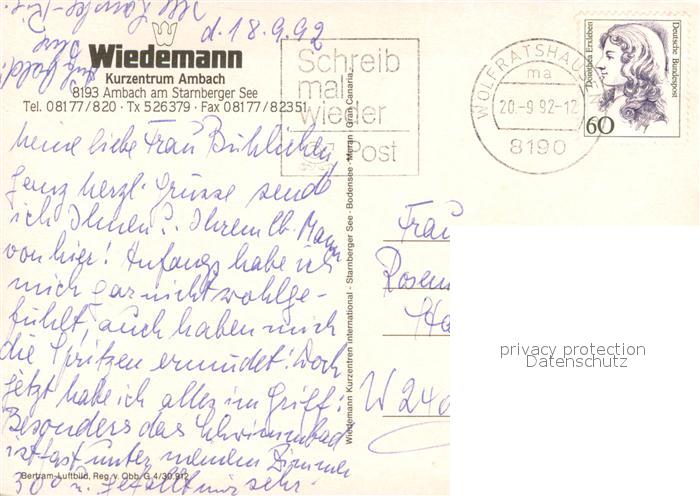 d. 18.9.92
Wiedemann
Kurzentrum Ambach
8193 Ambach am Starnberger See
Tel. 08177/820 · Tx 526379 · Fax 08177/82351
Meine liebe Frau
Ganz herzl. Grüsse sende
ich Ihnen u. Ihrem lb. Mann
von hier! Anfangs habe ich
mich gar nicht wohlge-
fühlt, auch haben mich
die Spritzen ermüdet! Doch
jetzt habe ich alles im Griff!
Besonders das Schwimmbad
ist fast unter meinem Zimmer
30° u. gefällt mir sehr
Bertram-Luftbild, Reg. v. Obb. G 4/30.912
Wiedemann Kurzentren international - Starnberger See - Bodensee - Meran - Gran Canaria
Schreib
mal
wieder
Post
WOLFRATSHAUSEN
ma
20.-9.92-12
8190
Dorothea Erxleben
Deutsche Bundespost
60
Frau
Rosem
Ha
W 240
privacy protection
Datenschutz